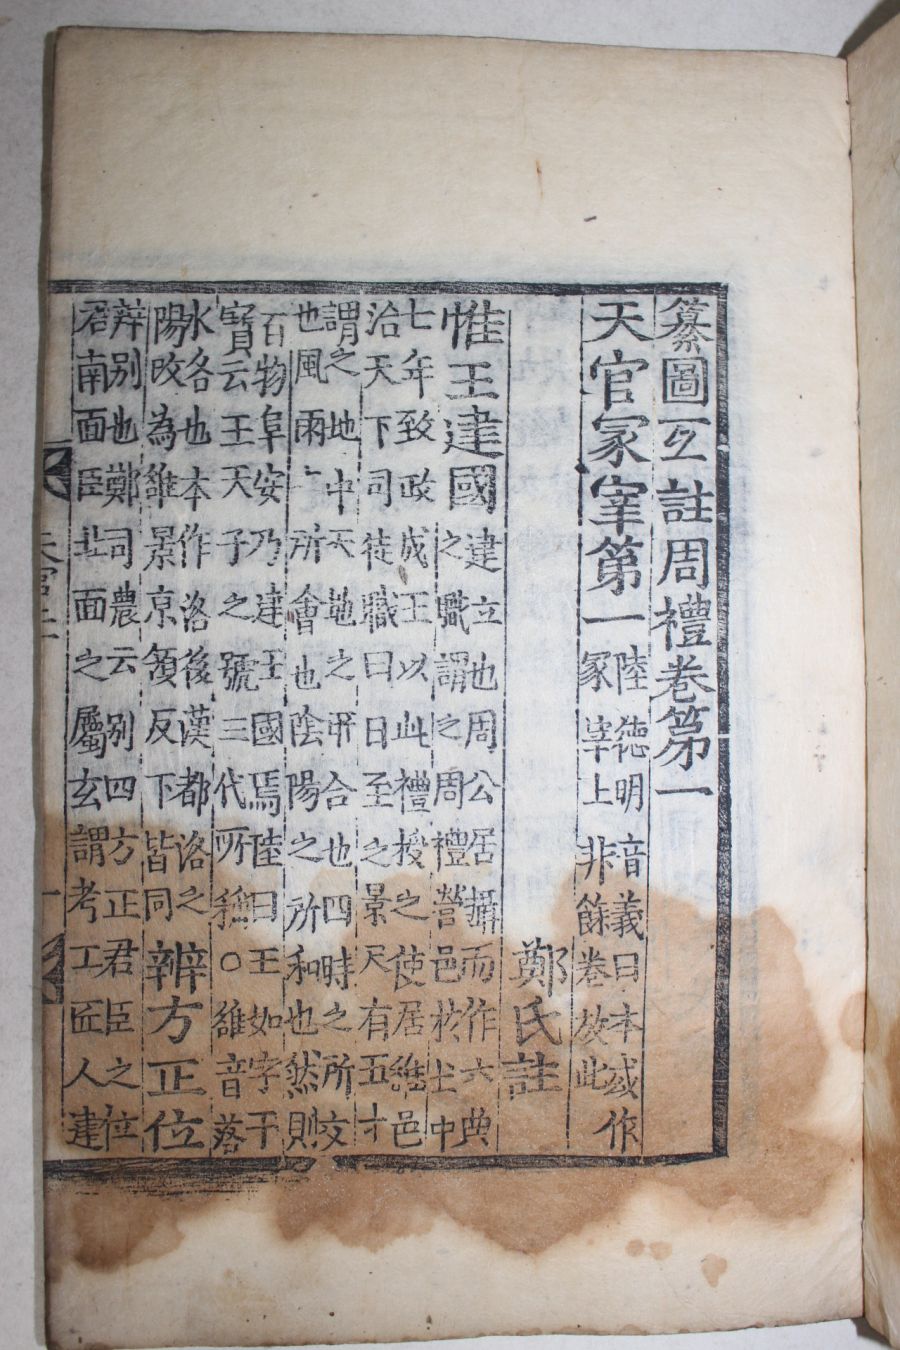 纂圖互註周禮卷第一
天官冢宰第一
陸德明音義曰本或作
冢宰上非餘卷放此
鄭氏註
惟王建國
建立也周公居攝而作六典
之職謂之周禮營邑於土中
七年致政成王以此禮授之使居雒邑
治天下司徒職曰日至之景尺有五寸
謂之地中天地之所合也四時之所交
也風雨之所會也陰陽之所和也然則
百物阜安乃建王國焉陸曰王如字干
寶云王天子之號三代所稱○雒音落
水名也本作洛後漢都洛之
陽改為雒景京領反下皆同
辨方正位
辨別也鄭司農云別四方正君臣之位
君南面臣北面之屬玄謂考工匠人建